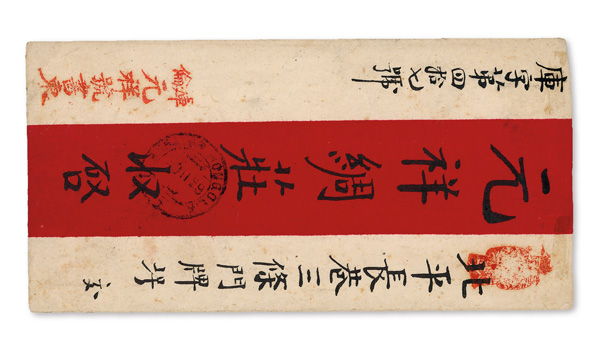 北平長巷三條門牌 交
元祥綢莊收啓
庫字第四拾七號
庫倫
元祥號書柬